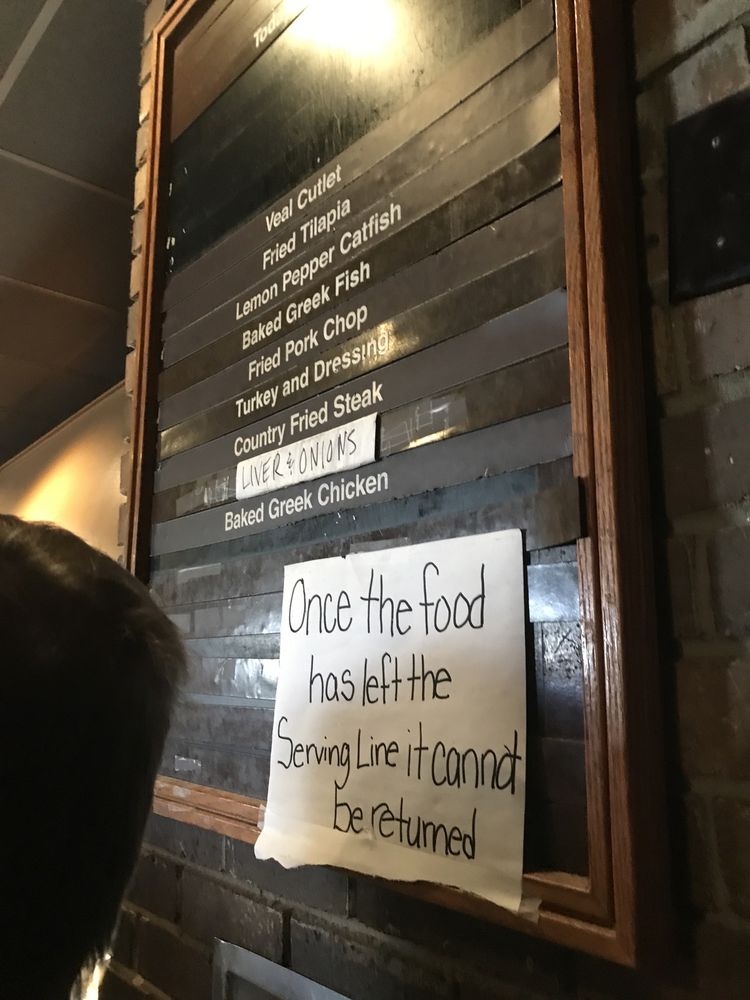 Veal Cutlet
Fried Tilapia
Lemon Pepper Catfish
Baked Greek Fish
Fried Pork Chop
Turkey and Dressing
Country Fried Steak
LIVER & ONIONS
Baked Greek Chicken
Once the food
has left the
Serving Line it cannot
be returned